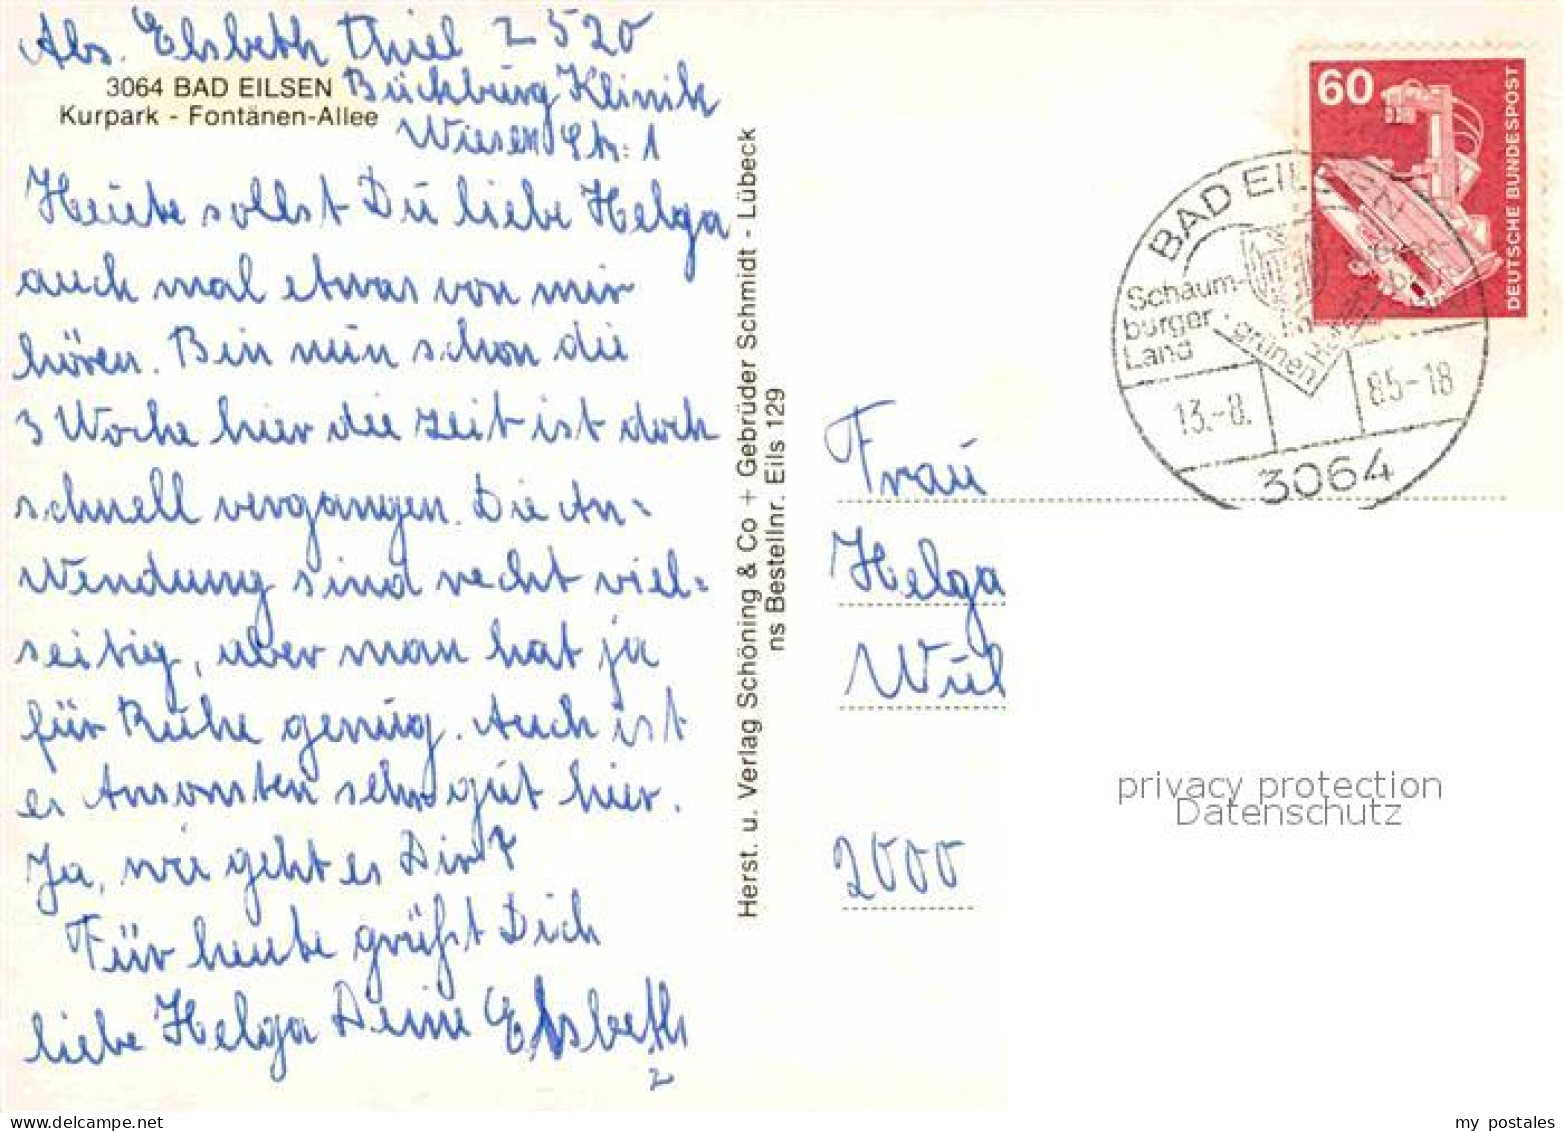 Abs. Elsbeth Thiel Z 520
3064 BAD EILSEN Bückburg Klinik
Kurpark - Fontänen-Allee Wiesen Str. 1
Heute sollst Du liebe Helga
auch mal etwas von mir
hören. Bin nun schon die
3 Woche hier die Zeit ist doch
schnell vergangen. Die An-
Wendung sind recht viel=
seitig, aber man hat ja
für Ruhe genug. Auch ist
es Ansonsten sehr gut hier.
Ja, wie geht es Dir?
Für heute grüßt Dich
liebe Helga Deine Elsbeth
Herst. u. Verlag Schöning & Co + Gebrüder Schmidt - Lübeck
ns Bestellnr. Eils 129
60
DEUTSCHE BUNDESPOST
BAD EILSEN
Schaum-
burger
Land
grünen
13.-8. 85-18
3064
Frau
Helga
Wul
2000
privacy protection
Datenschutz
my postales